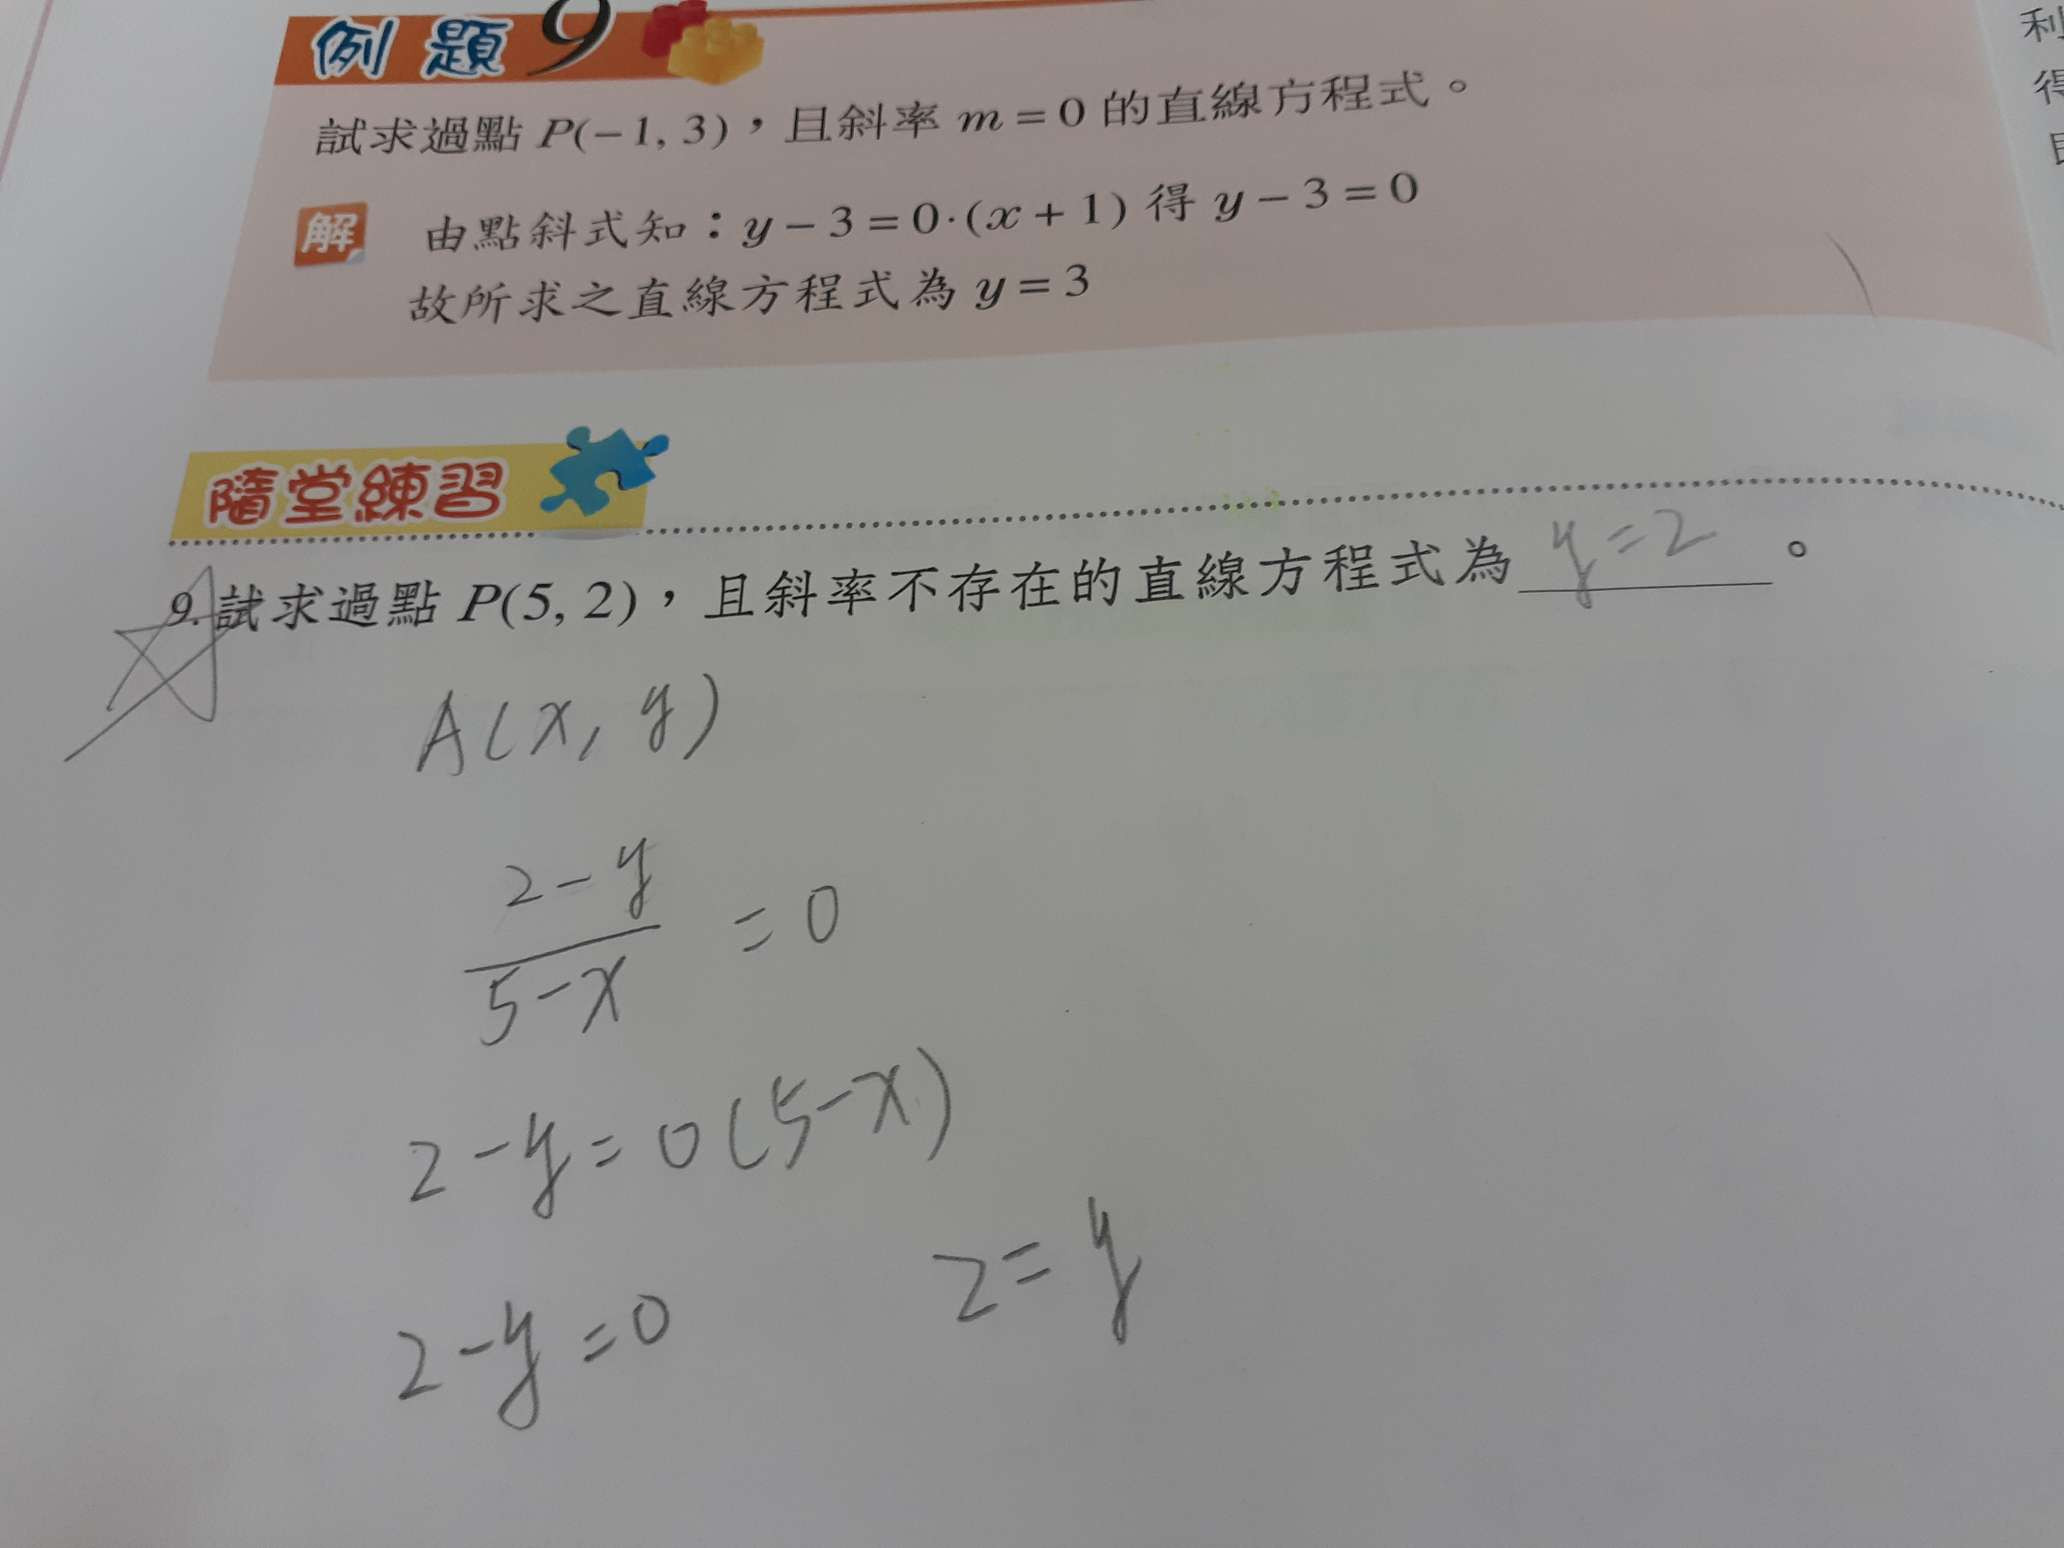 例題9
試求過點 P(−1, 3),且斜率 m = 0 的直線方程式。
解 由點斜式知:y − 3 = 0·(x + 1) 得 y − 3 = 0
故所求之直線方程式為 y = 3
利
得
隨堂練習
9. 試求過點 P(5, 2),且斜率不存在的直線方程式為 y=2 。
A(x, y)
2-y
5-x
=0
2-y=0(5-x)
2-y=0
2=y